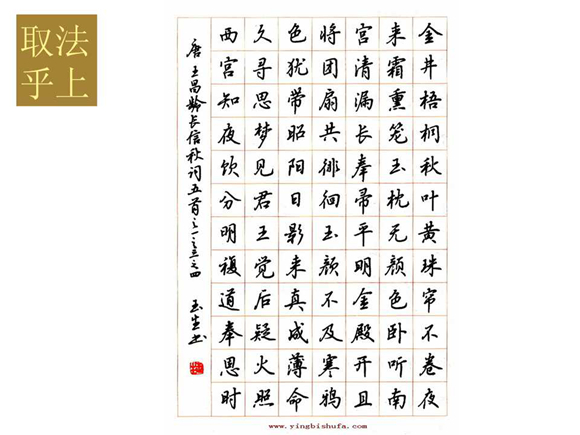 取法
乎上
金井梧桐秋叶黄珠帘不卷夜
来霜熏笼玉枕无颜色卧听南
宫清漏长奉帚平明金殿开且
将团扇共徘徊玉颜不及寒鸦
色犹带昭阳日影来真成薄命
久寻思梦见君王觉后疑火照
西宫知夜饮分明複道奉恩时
唐王昌龄长信秋词五首之一之三之四 玉生书
www.yingbishufa.com